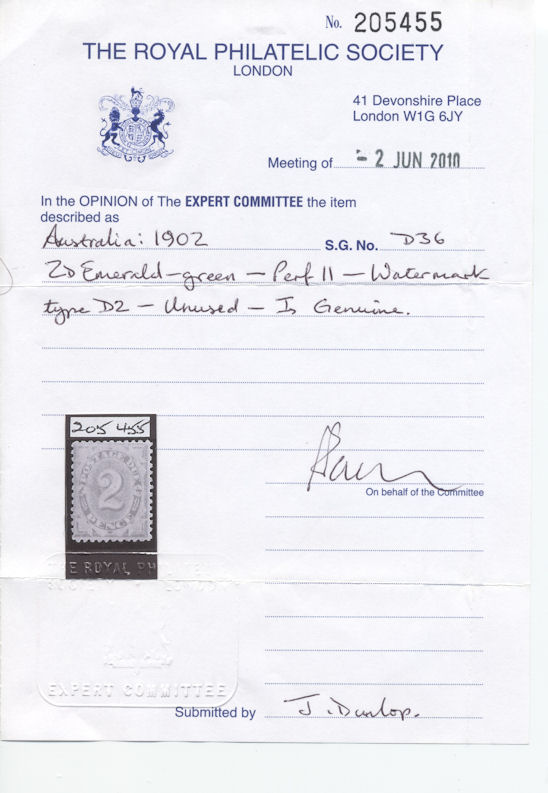 No. 205455
THE ROYAL PHILATELIC SOCIETY
LONDON
41 Devonshire Place
London W1G 6JY
Meeting of - 2 JUN 2010
In the OPINION of The EXPERT COMMITTEE the item
described as
Australia: 1902 S.G. No. D36
2D Emerald-green - Perf 11 - Watermark
type D2 - Unused - Is Genuine.
205 455
POSTAGE DUE
2
PENCE
On behalf of the Committee
THE ROYAL PHILATELIC
SOCIETY LONDON
EXPERT COMMITTEE
Submitted by J. Dunlop.